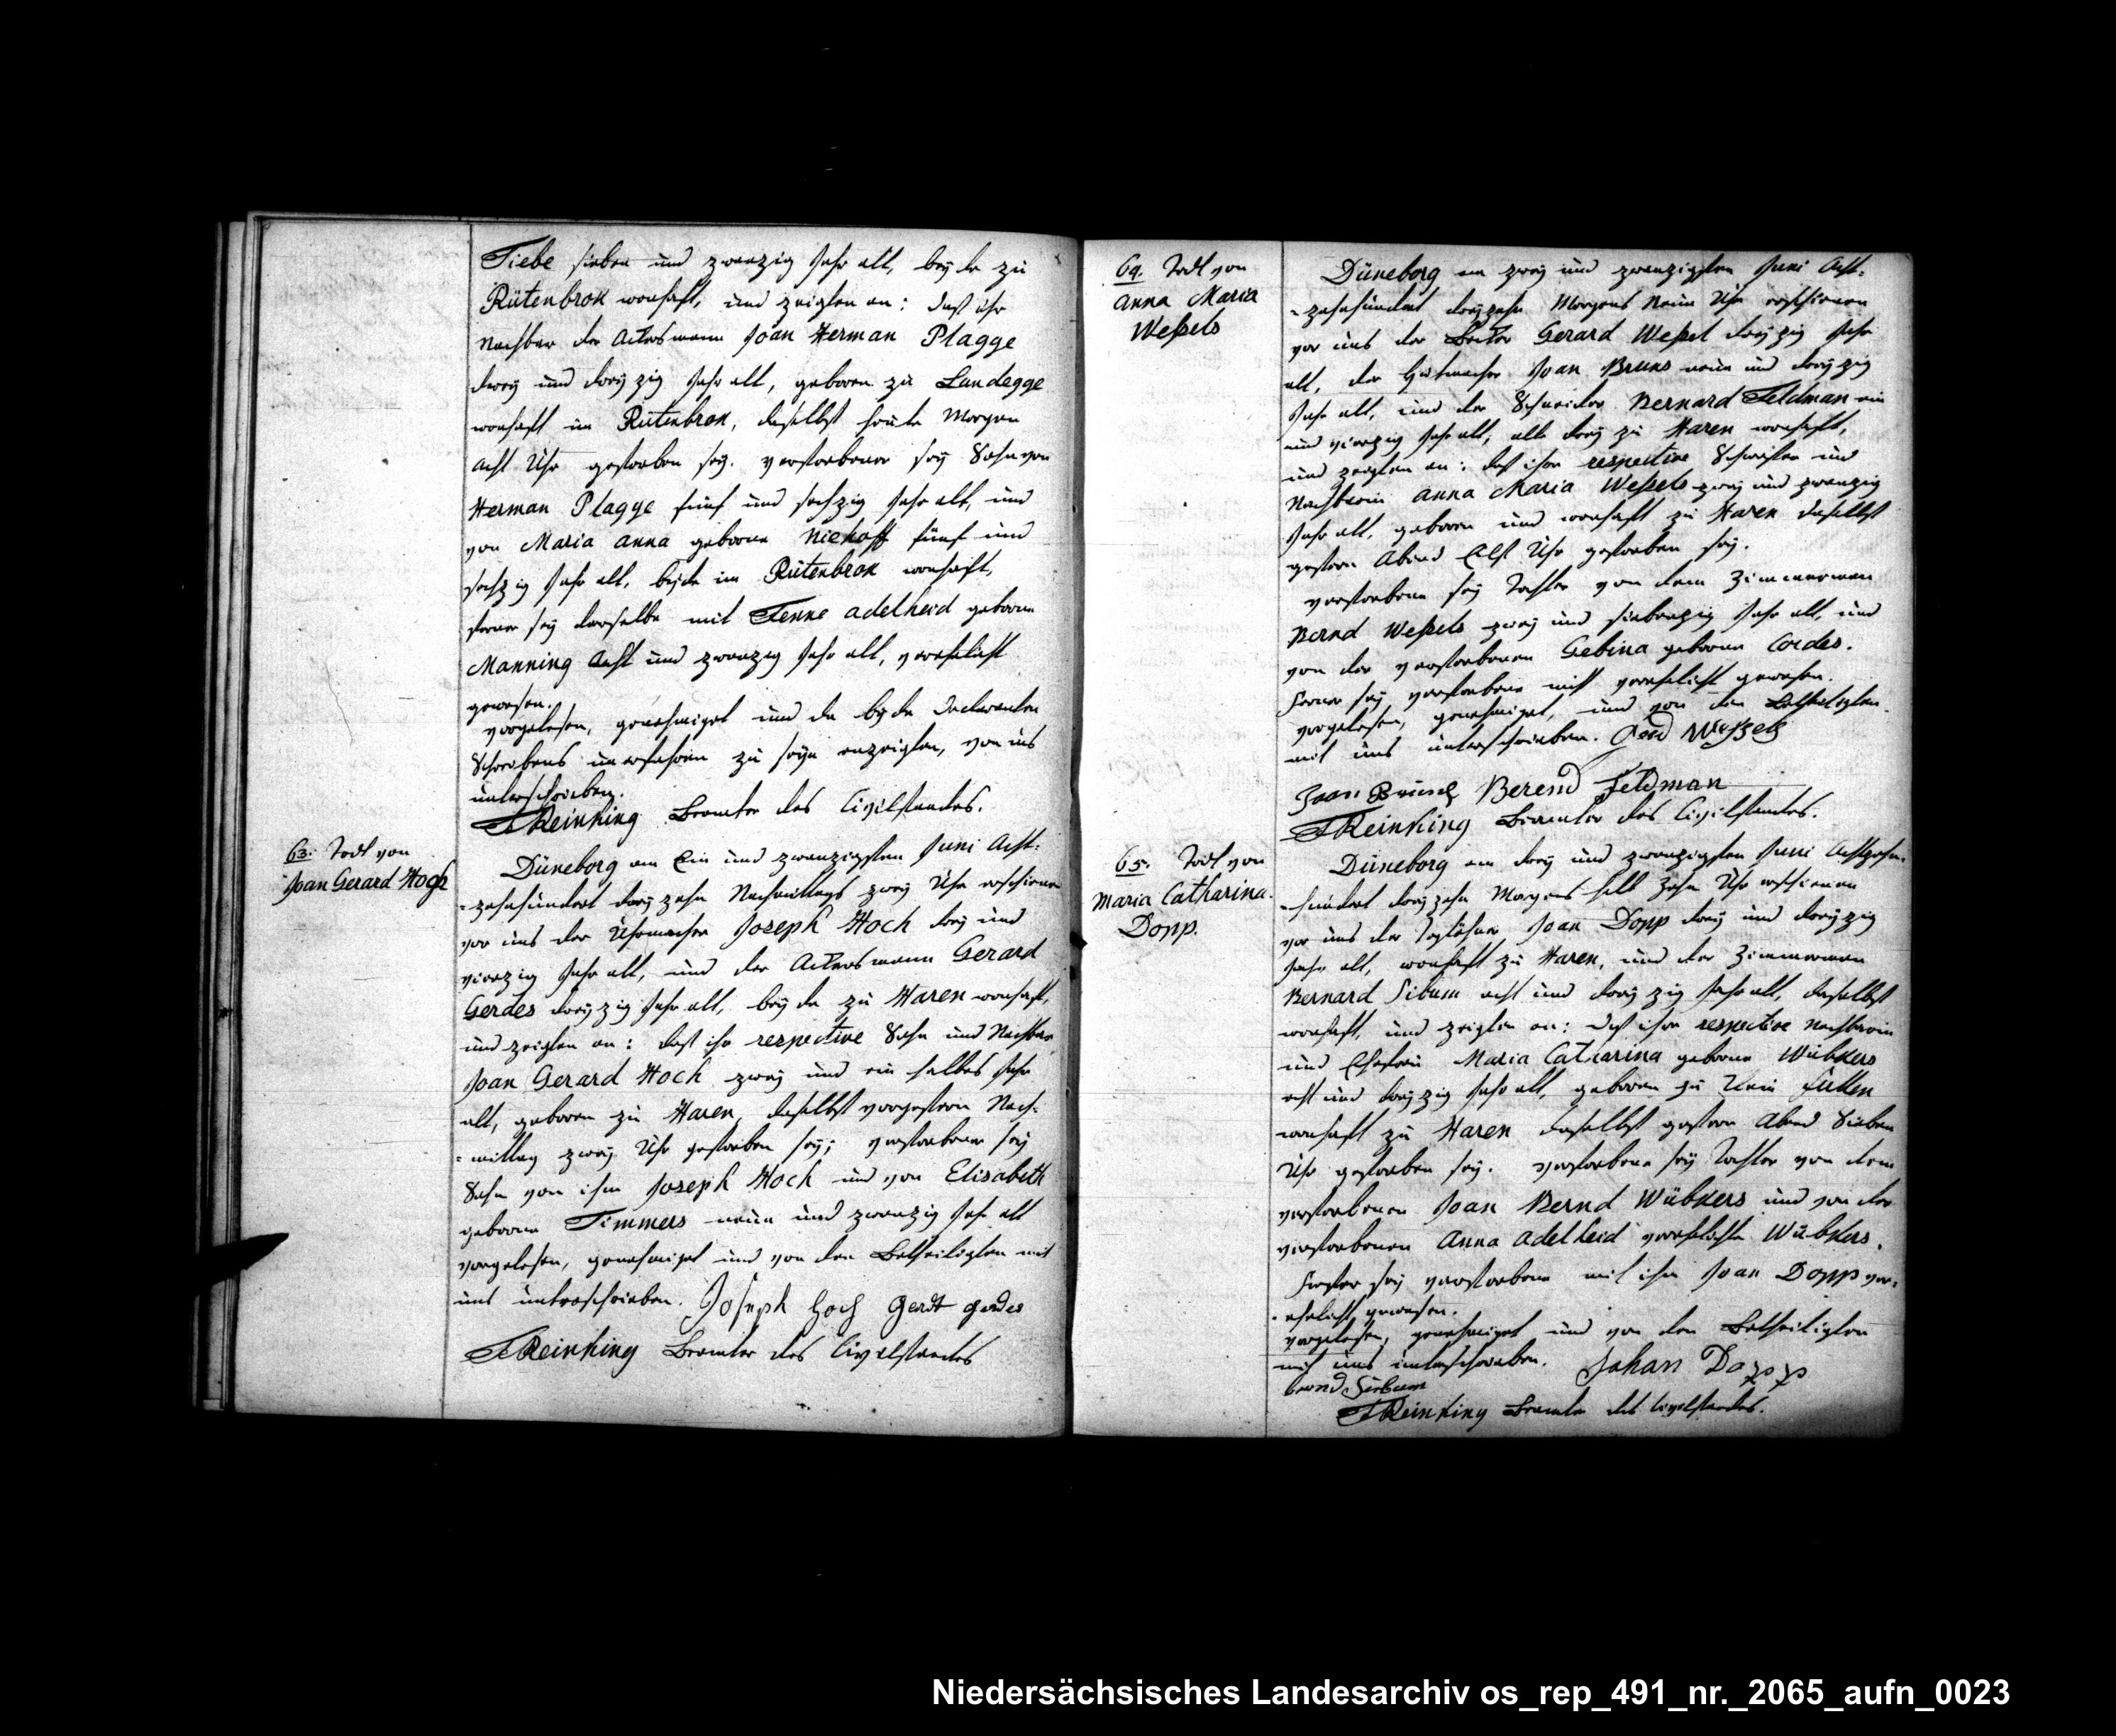 Tiebe sieben und zwanzig Jahr alt, beyde zu
Rütenbrok wonhaft, und zeigten an: daß ihr
Nachbar der Ackersmann Joan Herman Plagge
drey und dreyzig Jahr alt, geboren zu Landegge
wonhaft im Rütenbrok, daselbst heute Morgen
acht Uhr gestorben sey. Verstorbener sey Sohn von
Herman Plagge fünf und sechzig Jahr alt, und
von Maria Anna geborne Niehoff fünf und
sechzig Jahr alt, beyde im Rütenbrok wonhaft,
ferner sey derselbe mit Tenne Adelheid geborne
Manning acht und zwanzig Jahr alt, verehlicht
gewesen.
Vorgelesen, genehmiget und da beyde Declaranten
Schreibens unerfahren zu seyn anzeigten, von uns
unterschrieben.
Reinking Beamter des Civilstandes.
63. Todt von
Joan Gerard Hoch
Düneborg am Ein und zwanzigsten Juni Acht-
-zehnhundert dreyzehn Nachmittags zwey Uhr erschienen
vor uns der Uhrmacher Joseph Hoch drey und
vierzig Jahr alt, und der Ackersmann Gerard
Gerdes dreyzig Jahr alt, beyde zu Haren wonhaft,
und zeigten an: daß ihr respective Sohn und Nachbar
Joan Gerard Hoch zwey und ein halbes Jahr
alt, geboren zu Haren, daselbst vorgestern Nach-
-mittag zwey Uhr gestorben sey; Verstorbener sey
Sohn von ihm Joseph Hoch und von Elisabeth
geborne Timmers neun und zwanzig Jahr alt
vorgelesen, genehmiget und von den Betheiligten mit
uns unterschrieben. Joseph Hoch Gerdt Gerdes
Reinking Beamter des Civilstandes
64. Todt von
Anna Maria
Weßels
Düneborg am zwey und zwanzigsten Juni Acht-
-zehnhundert dreyzehn Morgens Neun Uhr erschienen
vor uns der Gerard Weßel dreyzig Jahr
alt, der Hutmacher Joan Bruns neun und dreyzig
Jahr alt, und der Schneider Bernard Feldman ein
und vierzig Jahr alt, alle drey zu Haren wonhaft,
und zeigten an: daß ihre respective Schwester und
Nachbarin Anna Maria Weßels zwey und zwanzig
Jahr alt, geboren und wonhaft zu Haren daselbst
gestern Abend Elf Uhr gestorben sey.
Verstorbene sey Tochter von dem Zimmerman
Bernd Weßels zwey und siebenzig Jahr alt, und
von der verstorbenen Gebina geborne Cordes.
Ferner sey verstorbene nicht verehlicht gewesen.
vorgelesen, genehmiget, und von den Betheiligten
mit uns unterschrieben. Gerd Weßels
Joan Brüns Berend Feldman
Reinking Beamter des Civilstandes.
65. Todt von
Maria Catharina
Dopp.
Düneborg am drey und zwanzigsten Juni Achtzehn-
-hundert dreyzehn Morgens halb zehn Uhr erschienen
vor uns der Taglöhner Joan Dopp drey und dreyzig
Jahr alt, wonhaft zu Haren, und der Zimmerman
Bernard Sibum acht und dreyzig Jahr alt, daselbst
wonhaft, und zeigten an: daß ihre respective Nachbarin
und Ehefrau Maria Catharina geborne Wübkers
acht und dreyzig Jahr alt, geboren zu Klein Fullen
wonhaft zu Haren daselbst gestern Abend Sieben
Uhr gestorben sey. Verstorbene sey Tochter von dem
verstorbenen Joan Bernd Wübkers und von der
verstorbenen Anna Adelheid verehlichte Wübkers.
Ferner sey verstorbene mit ihm Joan Dopp ver-
-ehelicht gewesen.
vorgelesen, genehmiget und von den Betheiligten
mit uns unterschrieben. Johan Dopp
Bernd Siebum
Reinking Beamter des Civilstandes.
Niedersächsisches Landesarchiv os_rep_491_nr._2065_aufn_0023